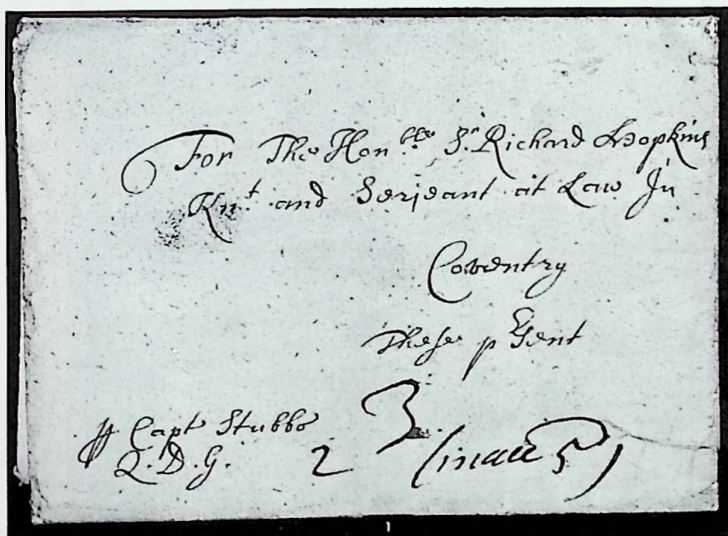 For The Honble Sr. Richard Hopkins
Knt. and Serjeant at Law In
Coventry
These pEsent
Capt Stubbs
Q. D. G. 2 3 (in all 5)